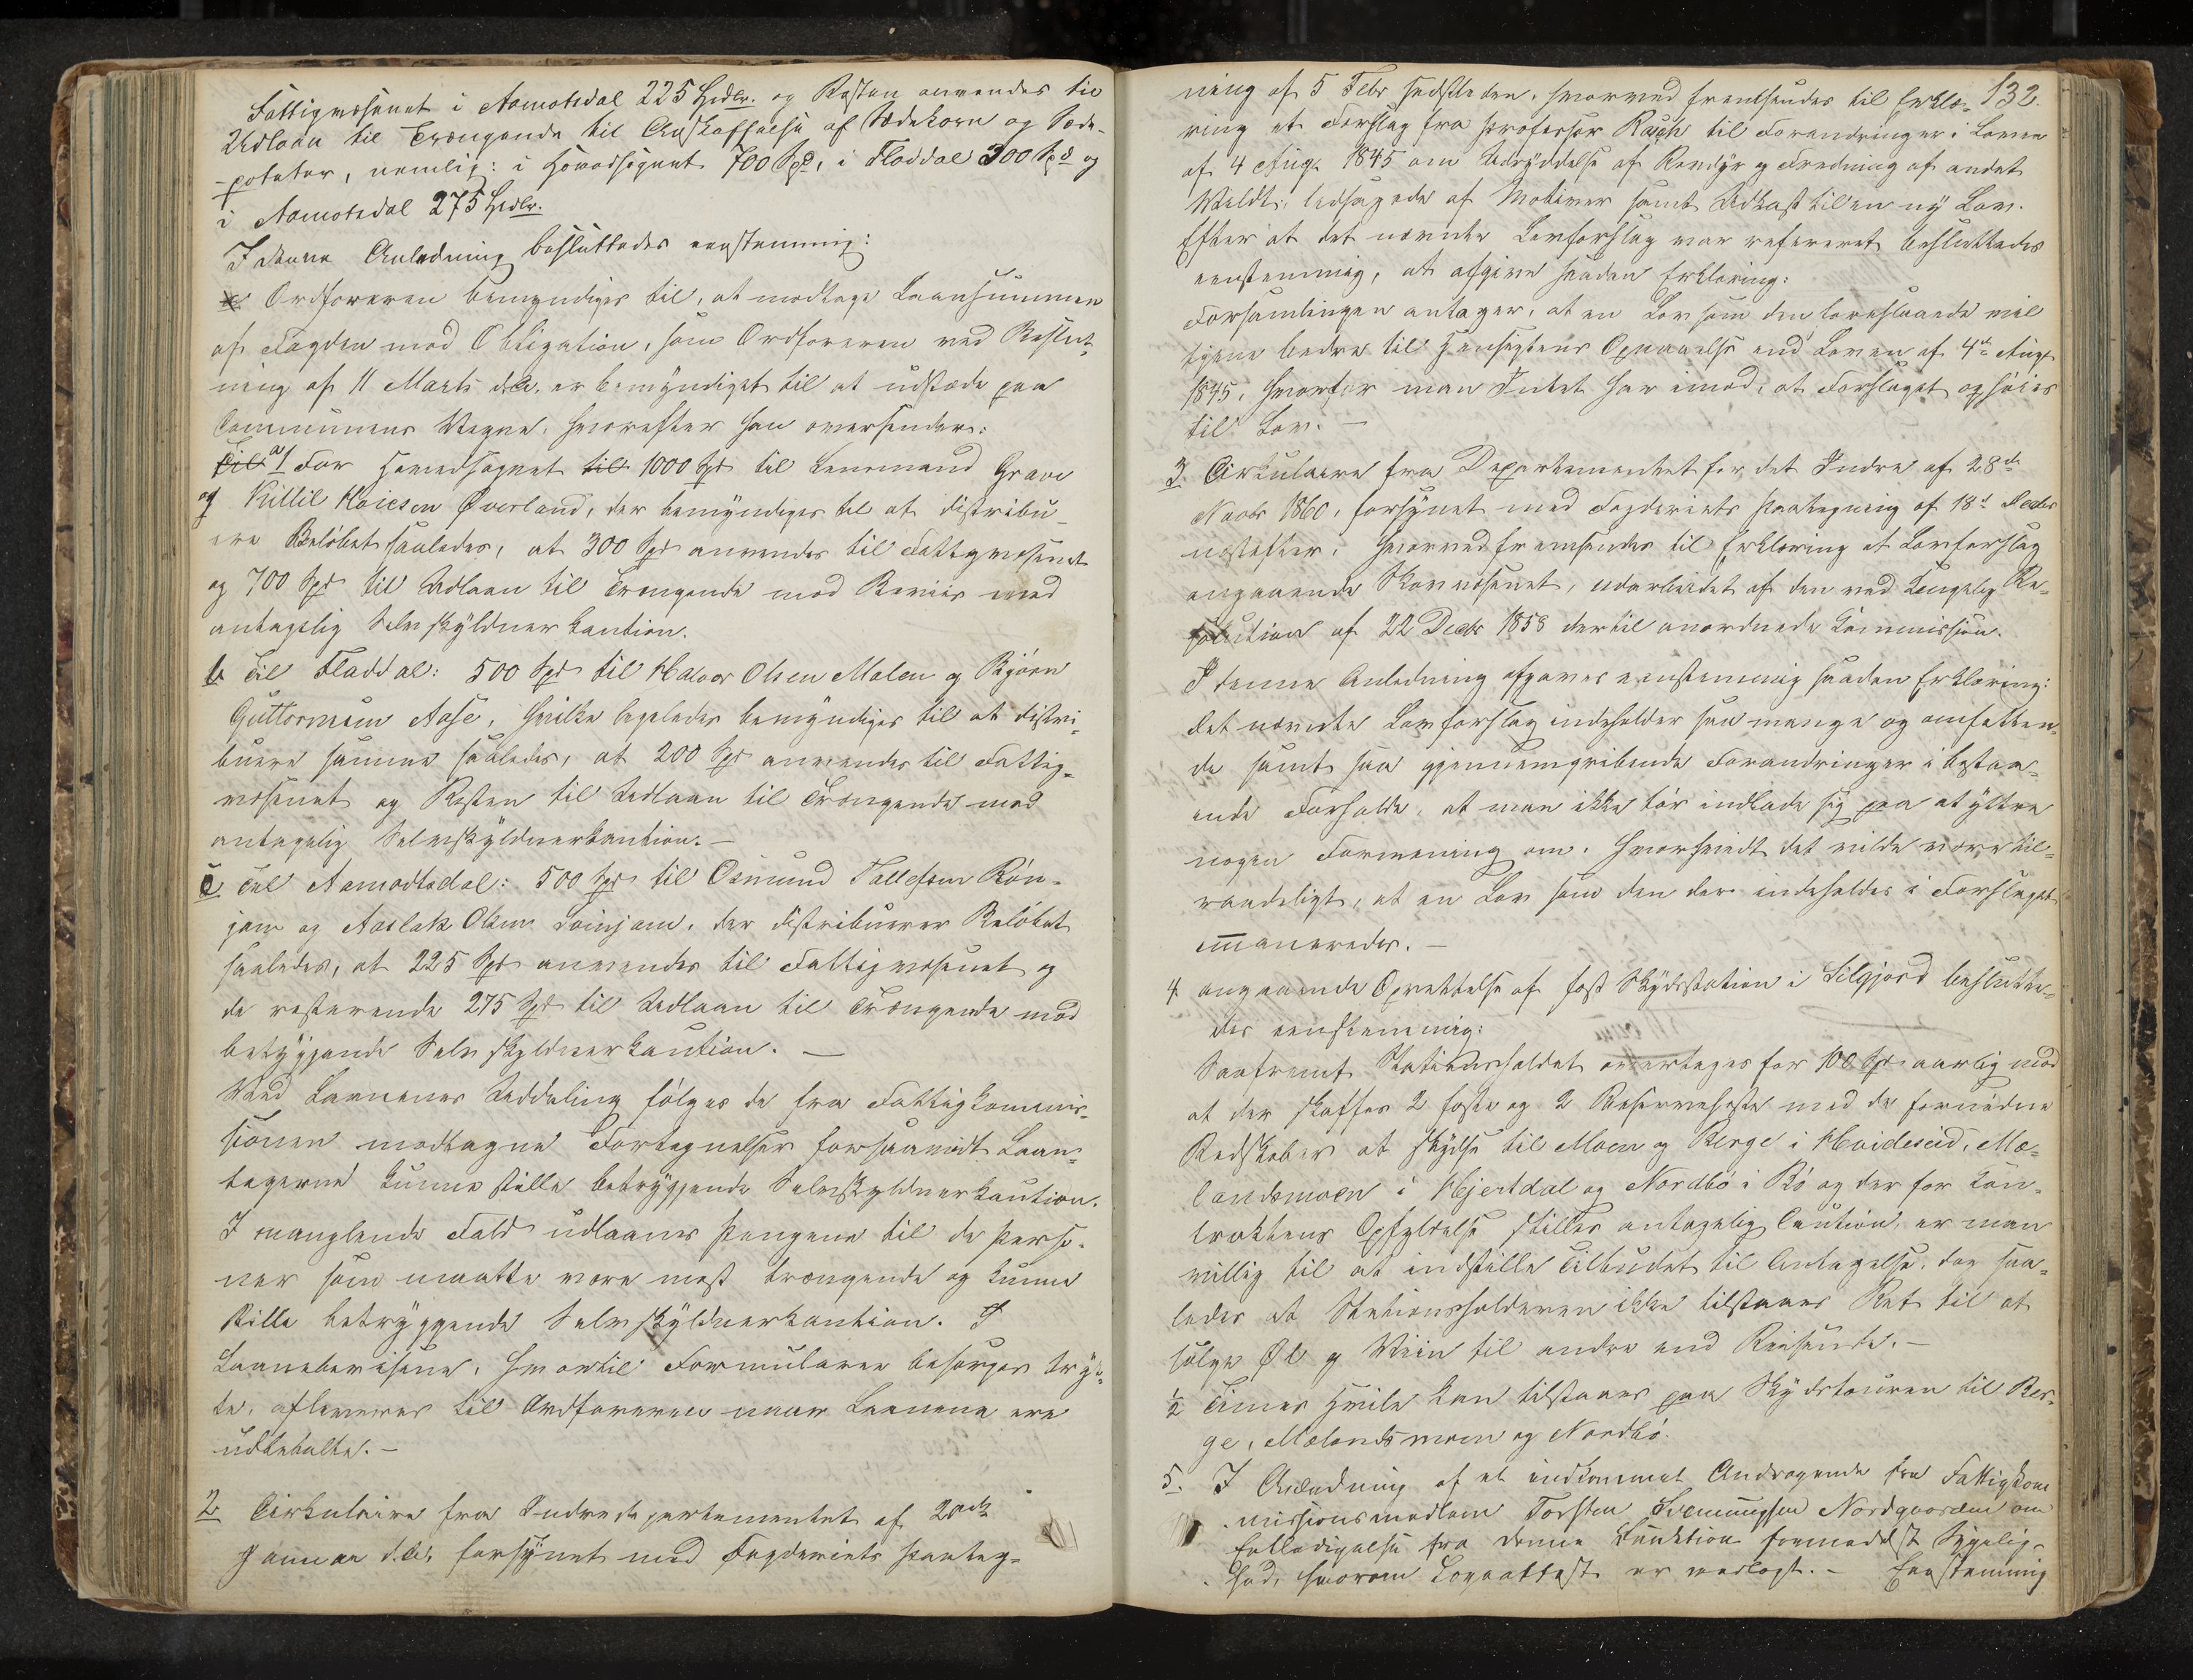 Fattigvæsenet i Aamotsdal 225 Spdlr. og Resten anvendes til
Udlaan til Trængende til Anskaffelse af Sædekorn og Sæde-
-poteter, nemlig: i Hovedsognet 700 Spd, i Fladdal 300 Spd og
i Aamotsdal 275 Spdlr.
I denne Anledning besluttedes eenstemmig:
Ordføreren bemyndiges til, at modtage Laansummen
af Fogden mod Obligation, som Ordføreren ved Beslut-
ning af 11 Marts d.A. er bemyndiget til at udstæde paa
Communens Vegne, hvorefter han oversender:
Til a/ For Hovedsognet til 1000 Spd til Lensmand Grave
og Killil Høiesen Øverland, der bemyndiges til at distribu-
ere Beløbet saaledes, at 300 Spd anvendes til Fattigvæsenet
og 700 Spd til Udlaan til Trængende mod Beviis med
antagelig Selvskyldnerkaution.
b Til Fladdal: 500 Spd til Halvor Olsen Moen og Bjørn
Guttormsen Aase, hvilke ligeledes bemyndiges til at distri-
buere samme saaledes, at 200 Spd anvendes til Fattig-
væsenet og Resten til Udlaan til Trængende mod
antagelig Selvskyldnerkaution. —
c Til Aamodtsdal: 500 Spd til Osmund Tallefsen Røn-
jom og Aaslak Olsen Loinjam, der distribuerer Beløbet
saaledes, at 225 Spd anvendes til Fattigvæsenet og
de resterende 275 Spd til Udlaan til Trængende mod
betryggende Selvskyldnerkaution. —
Ved Laanenes Uddeling følges de fra Fattigkommis-
sionen modtagne Fortegnelser forsaavidt Laan-
tagerne kunne stille betryggende Selvskyldnerkaution.
I manglende Fald udlaanes Pengene til de Perso-
ner som maatte være mest trængende og kunne
stille betryggende Selvskyldnerkaution. I
Laanebeviserne, hvortil Formularer besørges tryk-
te, afleveres til Ordføreren naar Laanene ere
udbetalte. —
2 Cirkulaire fra Indredepartementet af 20de
Januar d.A. forsynet med Fogderiets Paateg-
132.
ning af 5 Febr sidstleden, hvorved fremsendes til Erklæ-
ring et Forslag fra Professor Rasch til Forandringer i Loven
af 4 Aug. 1845 om Udryddelse af Rovdyr og Fredning af andet
Vildt, ledsagede af Motiver samt Udkast til en ny Lov.
Efter at det nævnte Lovforslag var refereret besluttedes
eenstemmig, at afgive saadan Erklæring:
Forsamlingen antager, at en Lov som den foreslaaede vil
tjene bedre til Hensigtens Opnaaelse end Loven af 4de Aug.
1845, hvorfor man Intet har imod, at Forslaget ophøies
til Lov. —
3. Cirkulaire fra Departementet for det Indre af 28de
Novbr 1860, forsynet med Fogderiets Paategning af 18d Decbr
næstefter, hvorved fremsendes til Erklæring et Lovforslag
angaaende Skovvæsenet, udarbeidet af den ved Kongelig Re-
solution af 22 Decbr 1858 dertil anordnede Commission.
I denne Anledning afgaves eenstemmig saadan Erklæring:
Det nævnte Lovforslag indeholder saa mange og omfatten-
de samt saa gjennemgribende Forandringer i bestaa-
ende Forholde, at man ikke tør indlade sig paa at yttre
nogen Formening om, hvorvidt det vilde være til-
raadeligt, at en Lov som den der indeholdes i Forslaget
emaneredes. —
4 angaaende Oprettelse af fast Skydsstation i Silgjord beslutte-
des eenstemmig:
Saafremt Stationsholdet overtages for 100 Spd aarlig mod
at der skaffes 2 faste og 2 Reserveheste med de fornødne
Redskaber at skydse til Moen og Berge i Hvideseid, Mæ-
landsmoen i Hjertdal og Nordbø i Bø og der for Kon-
traktens Opfyldelse stilles antagelig Caution, er man
villig til at indstille Tilbudet til Antagelse, dog saa-
ledes at Stationsholderen ikke tilstaaes Ret til at
sælge Øl og Viin til andre end Reisende. —
1/2 Times Hvile kan tilstaaes paa Skydstouren til Ber-
ge, Mælandsmoen og Nordbø.
5. I Anledning af et indkommet Andragende fra Fattigkom
missionsmedlem Torsten Svenungsen Nordgaarden om
Entledigelse fra denne Funktion formedelst Sygelig-
hed, hvorom Lægeattest er vedlagt. — Eenstemmig